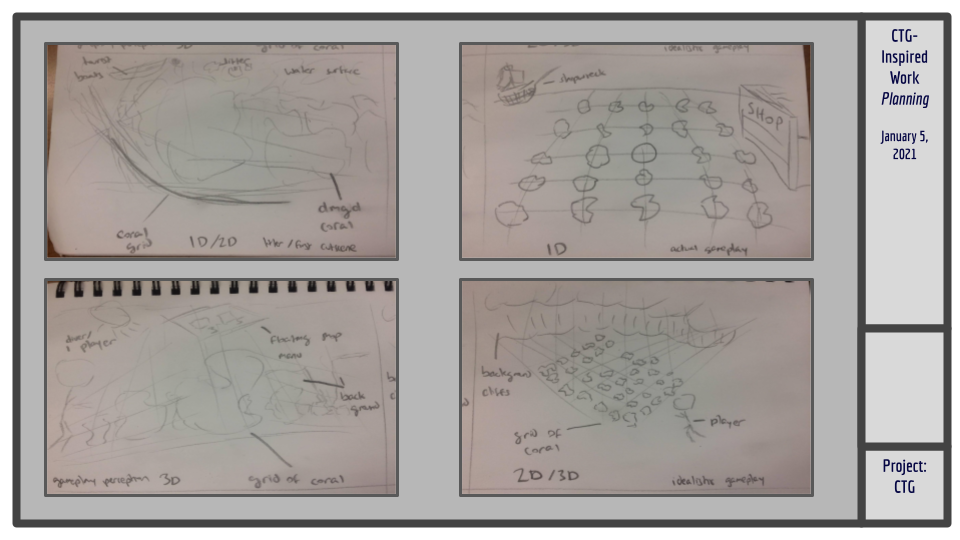 3D
grid of coral
tourist
boats
litter
water surface
coral
grid
1D/2D
coral
idealistic gameplay
shipwreck
SHOP
1D
actual gameplay
diver/
player
floating map
menu
back
ground
gameplay perception 3D
grid of coral
background
cities
grid of
coral
player
2D/3D
idealistic gameplay
CTG-
Inspired
Work
Planning
January 5,
2021
Project:
CTG